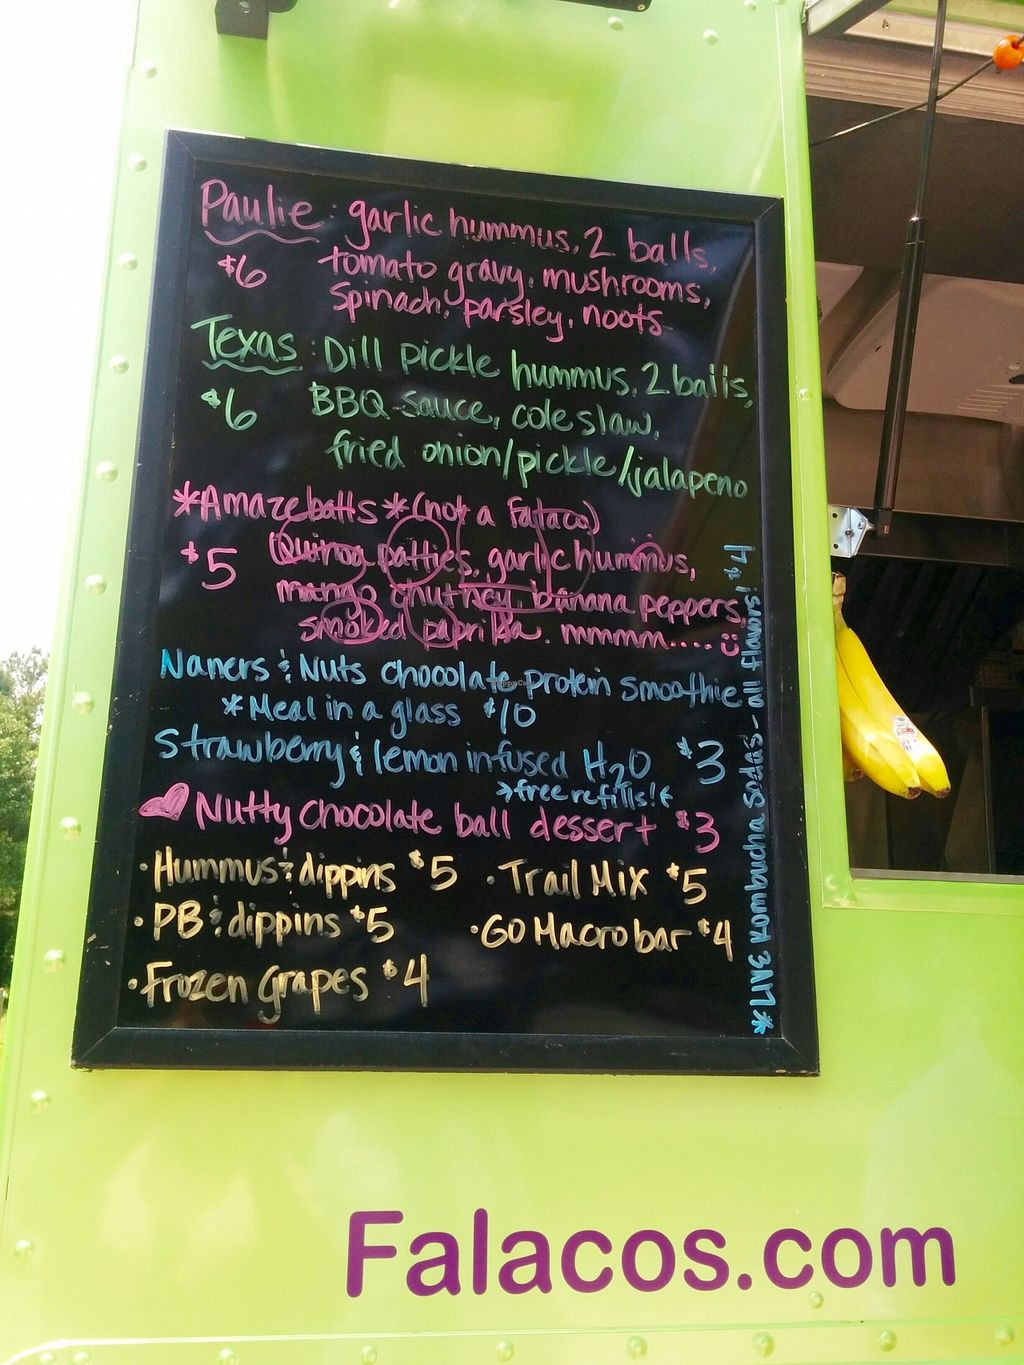 Paulie: garlic hummus, 2 balls,
$6 tomato gravy, mushrooms,
Spinach, parsley, noots
Texas: Dill pickle hummus, 2 balls,
$6 BBQ sauce, coleslaw,
fried onion/pickle/jalapeno
*Amazeballs* (not a Falaco)
$5 Quinoa patties, garlic hummus,
mango chutney, banana peppers,
smoked paprika. mmmm....
Naners & Nuts chocolate protein smoothie
*Meal in a glass $10
Strawberry & lemon infused H2O $3
→free refills!←
Nutty chocolate ball dessert $3
·Hummus & dippins $5 ·Trail Mix $5
·PB & dippins $5 ·GO Macro bar $4
·Frozen Grapes $4
*LIVE Kombucha Sodas - all flavors! $4
Falacos.com